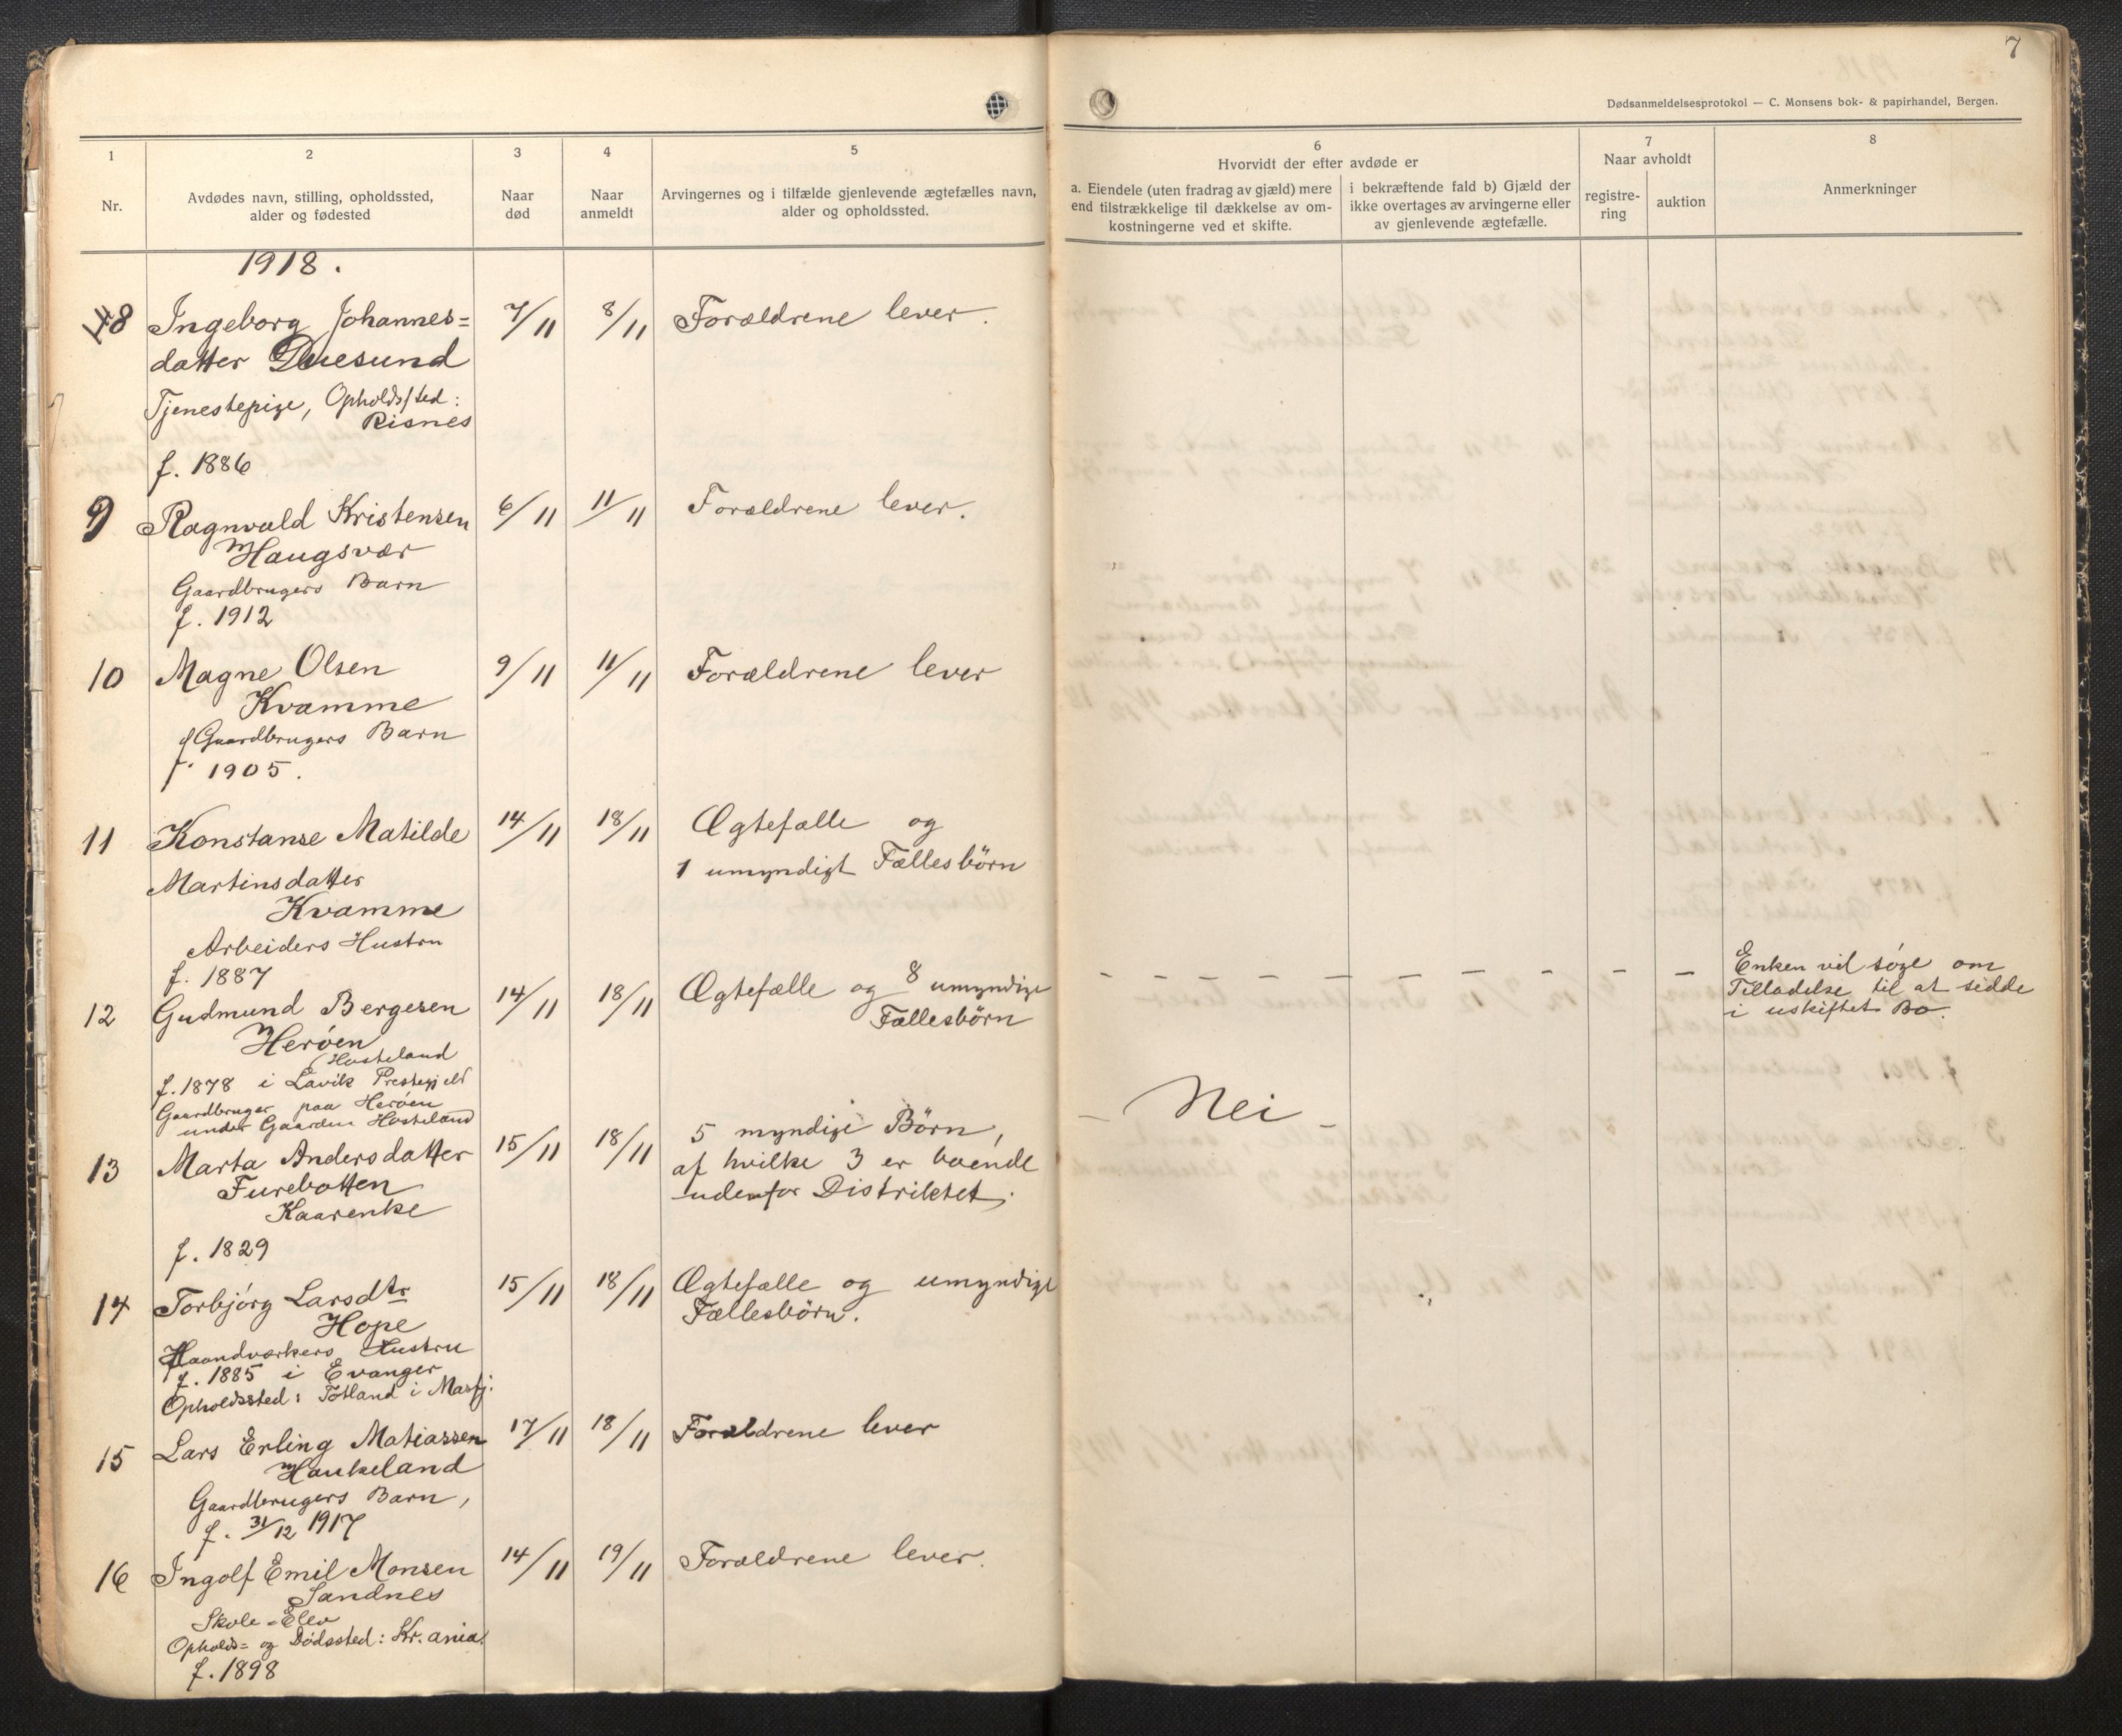 7
Dødsanmeldelsesprotokol — C. Monsens bok- & papirhandel, Bergen.
1
Nr.
2
Avdødes navn, stilling, opholdssted,
alder og fødested
3
Naar
død
4
Naar
anmeldt
5
Arvingernes og i tilfælde gjenlevende ægtefælles navn,
alder og opholdssted.
6
Hvorvidt der efter avdøde er
a. Eiendele (uten fradrag av gjæld) mere
end tilstrækkelige til dækkelse av om-
kostningerne ved et skifte.
i bekræftende fald b) Gjæld der
ikke overtages av arvingerne eller
av gjenlevende ægtefælle.
7
Naar avholdt
registre-
ring
auktion
8
Anmerkninger
1918.
8 Ingeborg Johannes= 7/11 8/11 Forældrene lever.
datter Duesund
Tjenestepige, Opholdssted:
Risnes
f. 1886
9 Ragnvald Kristensen 6/11 11/11 Forældrene lever.
Haugsvær
Gaardbrugers Barn
f. 1912
10 Magne Olsen 9/11 11/11 Forældrene lever
Kvamme
Gaardbrugers Barn
f. 1905.
11 Konstanse Matilde 14/11 18/11 Ægtefælle og
1 umyndigt Fællesbörn
Martinsdatter
Kvamme
Arbeiders Hustru
f. 1887
12 Gudmund Bergesen 14/11 18/11 Ægtefælle og 8 umyndige
Fællesbörn
Enken vil søge om
Tilladelse til at sidde
i uskiftet Bo.
Herøen
(Hosteland
f. 1878 i Lavik Prestegjeld
Gaardbruger paa Herøen
under Gaarden Hosteland
— Nei —
13 Marta Andersdatter 15/11 18/11 5 myndige Börn,
af hvilke 3 er boende
udenfor Distriktet.
Furebotten
Kaarenke
f. 1829
14 Torbjörg Larsdtr 15/11 18/11 Ægtefælle og umyndige
Fællesbörn.
Hope
Haandværkers Hustru
f. 1885 i Evanger
Opholdssted: Totland i Masfj.
15 Lars Erling Matiassen 17/11 18/11 Forældrene lever
Haukeland
Gaardbrugers Barn,
f. 31/12 1917
16 Ingolf Emil Monsen 14/11 19/11 Forældrene lever.
Sandnes
Skole=Elev
Opholds= og Dödssted: Kr.ania.
f. 1898